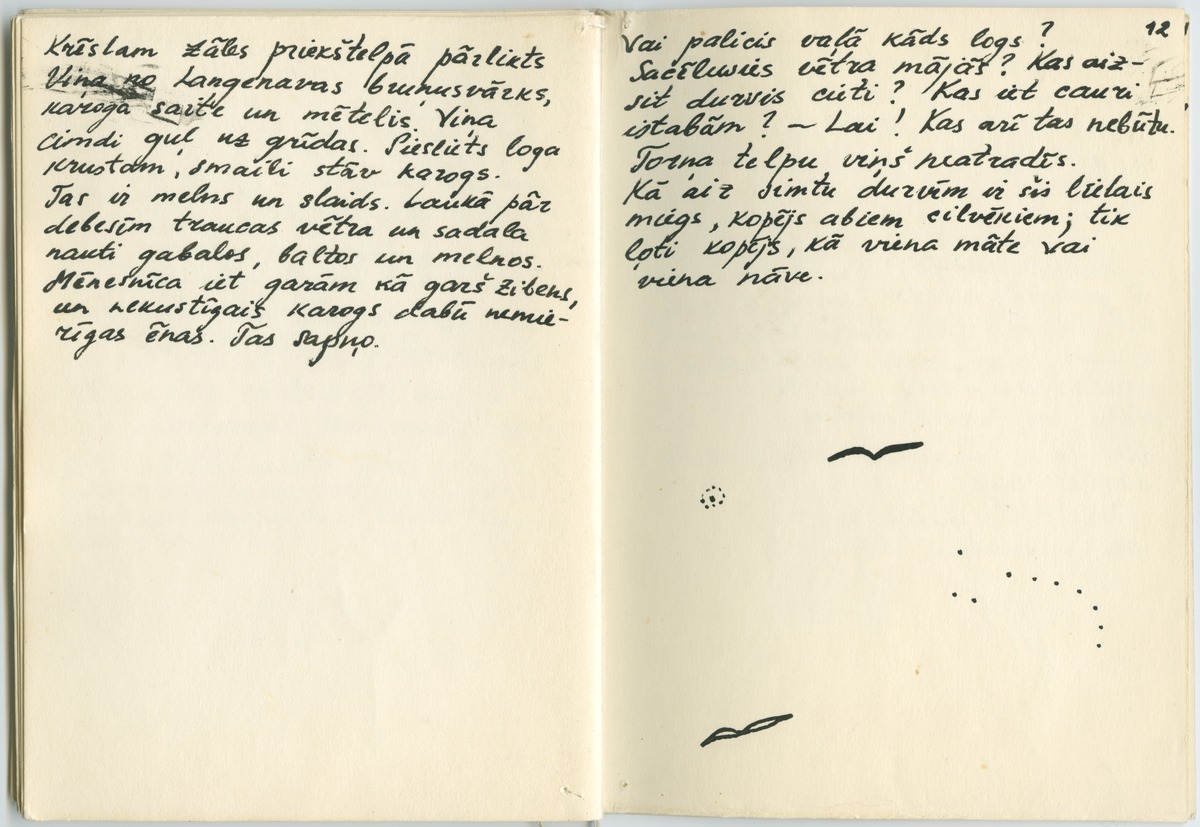 Krīslam zāles priekštelpā pārlikts
Viņa no Langenavas bruņusvārks,
karoga saite un mētelis. Viņa
cimdi guļ uz grīdas. Pieslēts loga
krustam, smaili stāv karogs.
Tas ir melns un slaids. Laukā pār
debesīm traucas vētra un sadala
nauti gabalos, baltos un melnos.
Mēnesnīca iet garām kā garš zibens,
un nekustīgais karogs dabū nemie-
rīgas ēnas. Tas sapņo.
12
Vai palicis vaļā kāds logs?
Sacēlusies vētra mājās? Kas aiz-
sit durvis cieti? Kas iet cauri
istabām? – Lai! Kas arī tas nebūtu.
Torņa telpu viņš neatradīs.
Kā aiz simtu durvīm ir šis lielais
miegs, kopējs abiem cilvēkiem; tik
ļoti kopējs, kā viena māte vai
viena nāve.